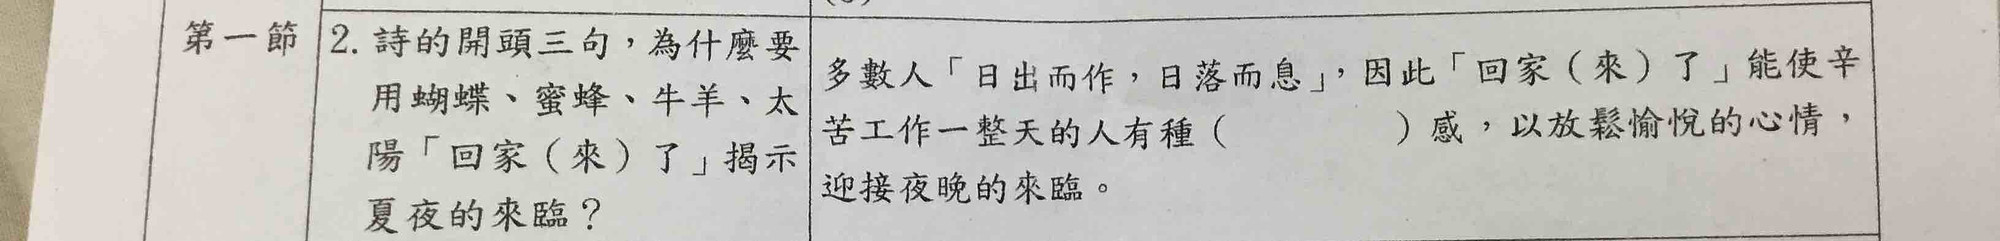 第一節
2. 詩的開頭三句，為什麼要
用蝴蝶、蜜蜂、牛羊、太
陽「回家（來）了」揭示
夏夜的來臨？
多數人「日出而作，日落而息」，因此「回家（來）了」能使辛
苦工作一整天的人有種（　　　　）感，以放鬆愉悅的心情，
迎接夜晚的來臨。